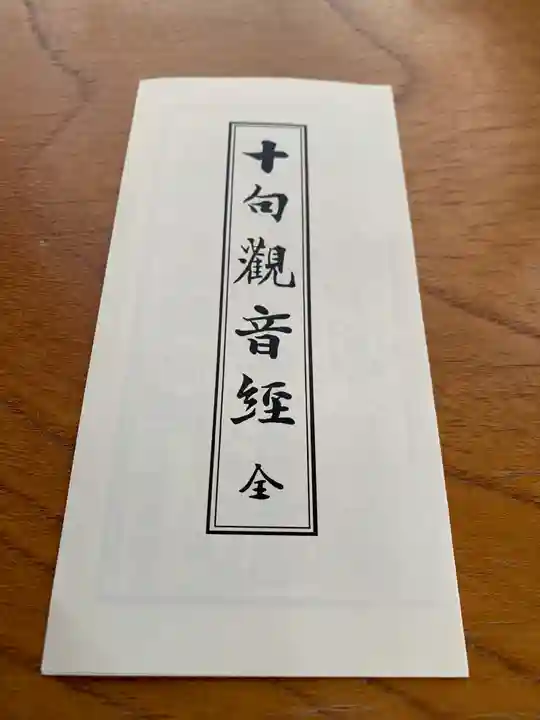 十句觀音経全